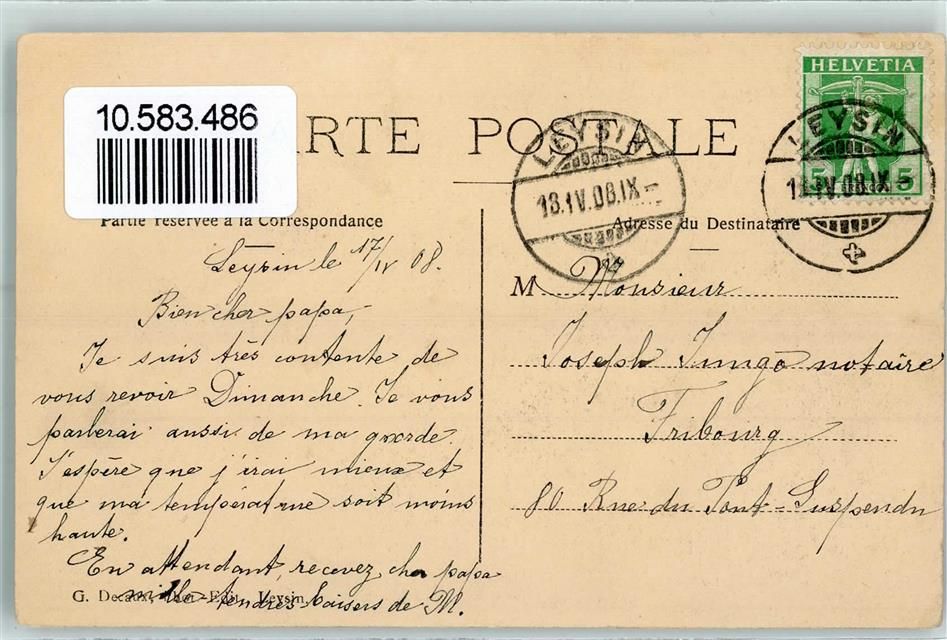 10.583.486
RTE POSTALE
HELVETIA
5 5
LEYSIN
18.IV.08.IX-
LEYSIN
18.IV.08.IX-
Partie réservée à la Correspondance
Adresse du Destinataire
Leysin le 17/IV 08.
Bien cher papa,
Je suis très contente de
vous revoir Dimanche. Je vous
parlerai aussi de ma garde.
J'espère que j'irai mieux et
que ma température soit moins
haute.
En attendant, recevez cher papa
mille tendres baisers de M.
G. Decaux, Edit. Leysin
M Monsieur
Joseph Jungo notaire
Fribourg
80 Rue du Pont-Suspendu